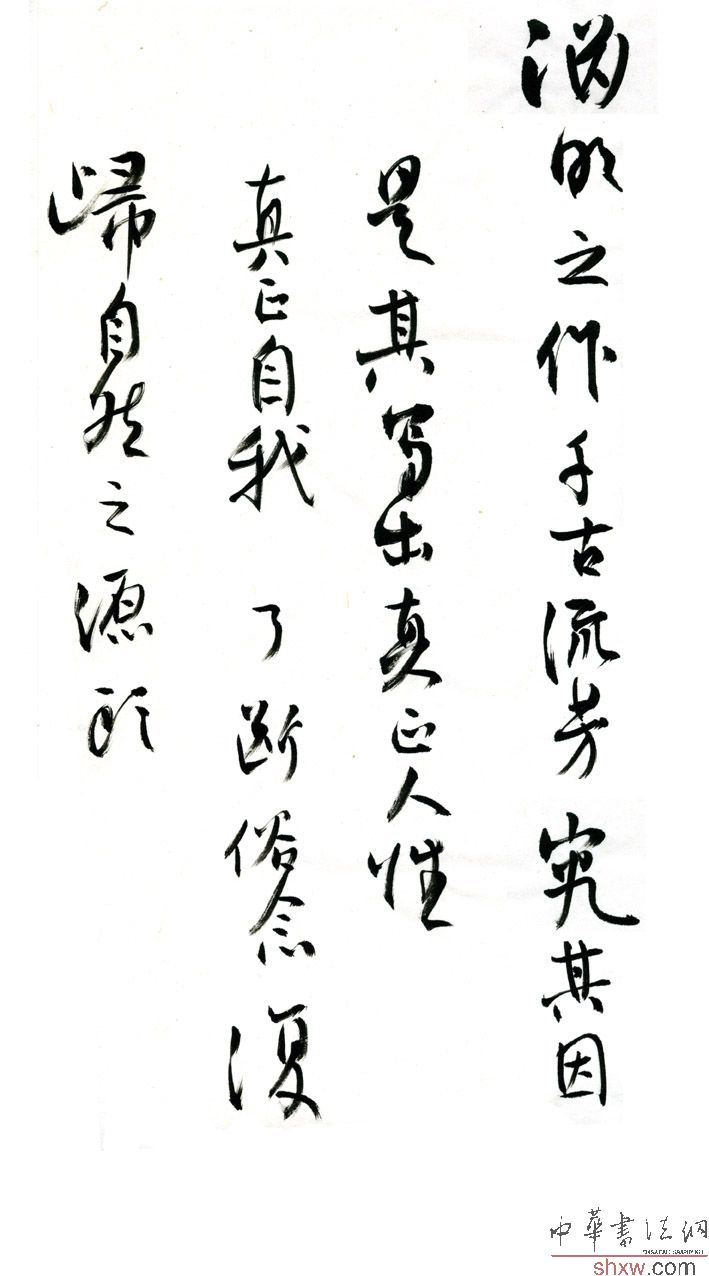 渊明之作千古流芳究其因
是其写出真正人性
真正自我了断俗念復
歸自然之源头
中華書法網
shxw.com